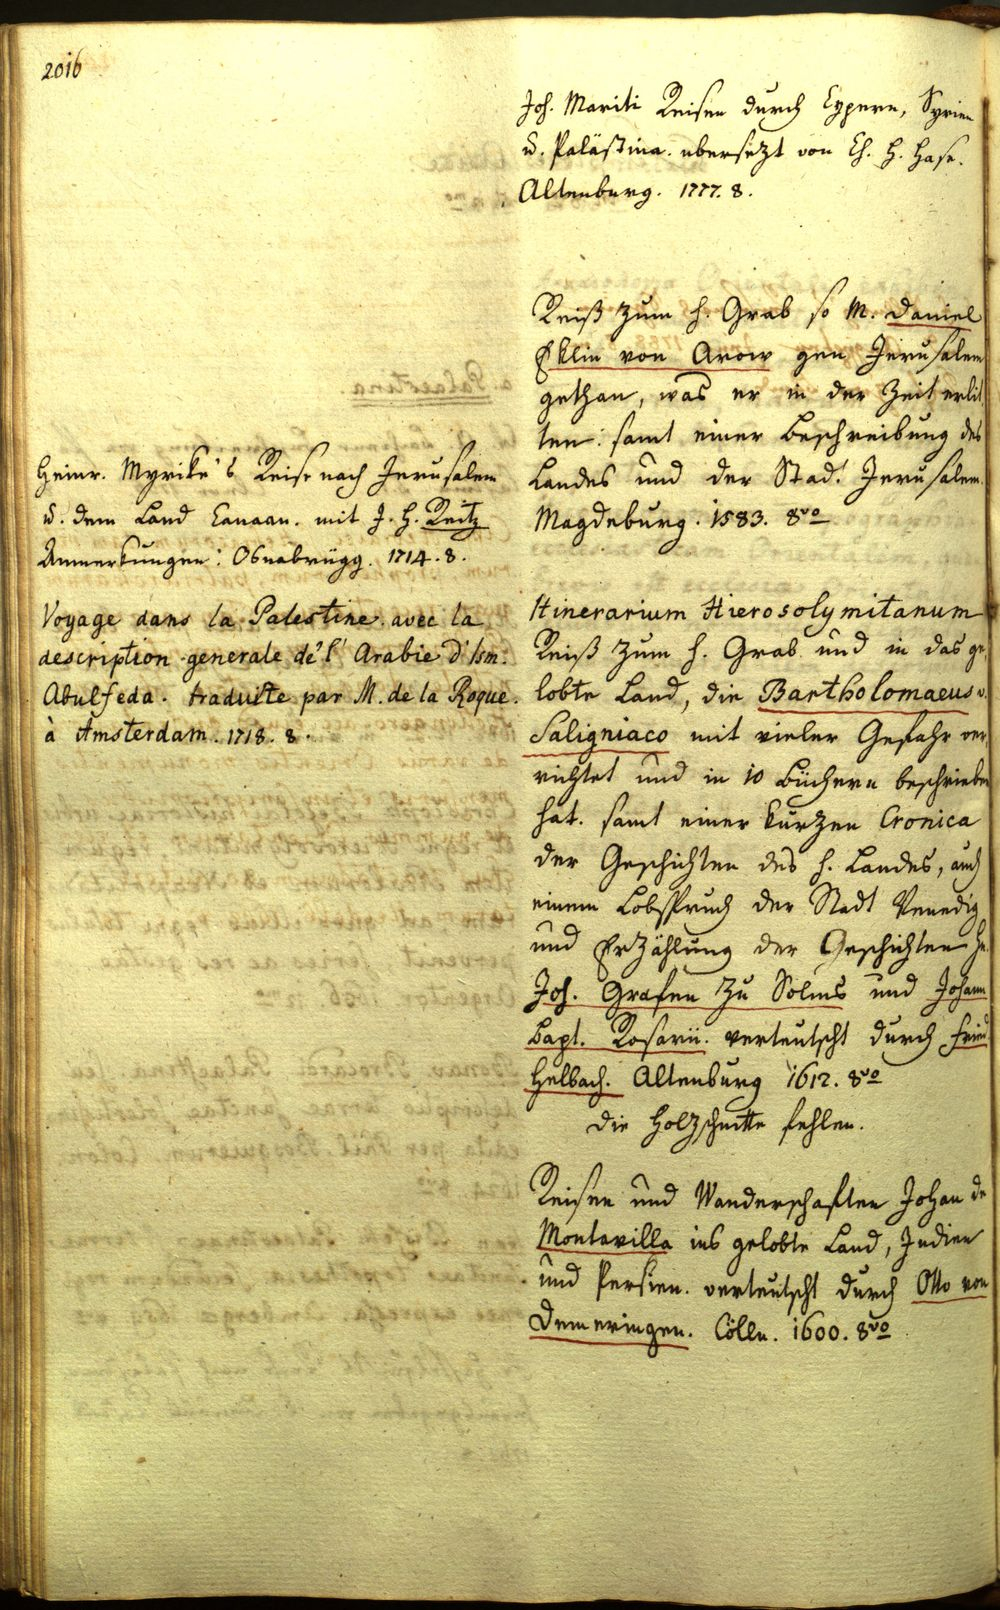 2016
Heinr. Myrike's Reise nach Jerusalem
u. dem Land Canaan. mit J. H. Reitz
Anmerkungen: Osnabrügg. 1714. 8.
Voyage dans la Palestine. avec la
description generale de l' Arabie d'Ism.
Abulfeda. traduite par M. de la Roque.
à Amsterdam. 1718. 8.
Joh. Mariti Reisen durch Cypern, Syrien
u. Palästina. ubersetzt von Ch. H. Hase.
Altenburg. 1777. 8.
Reiß zum h. Grab so M. Daniel
Eklin von Arow gen Jerusalem
gethan, was er in der Zeit erlit
ten: samt einer Beschreibung des
Landes und der Stad. Jerusalem.
Magdeburg. 1583. 8vo
Itinerarium Hierosolymitanum
Reiß zum h. Grab und in das ge
lobte Land, die Bartholomaeus v.
Saligniaco mit vieler Gefahr ver
richtet und in 10 Büchern beschrieben
hat. samt einer kurzen Cronica
der Geschichten des h. Landes, auch
einem Lobspruch der Stadt Venedig
und Erzählung der Geschichten H.
Joh. Grafen zu Solms und Johann
Bapt. Rosarii. verteutscht durch Fried
Helbach. Altenburg 1612. 8vo
die Holzschnitte fehlen.
Reisen und Wanderschafften Johan de
Montevilla ins gelobte Land, Indien
und Persien. verteutscht durch Otto von
Demeringen. Cölln. 1600. 8vo